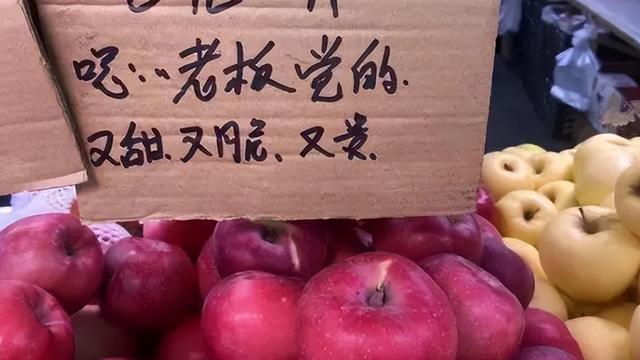 呢:…老板觉的.
又甜.又脆.又贵.